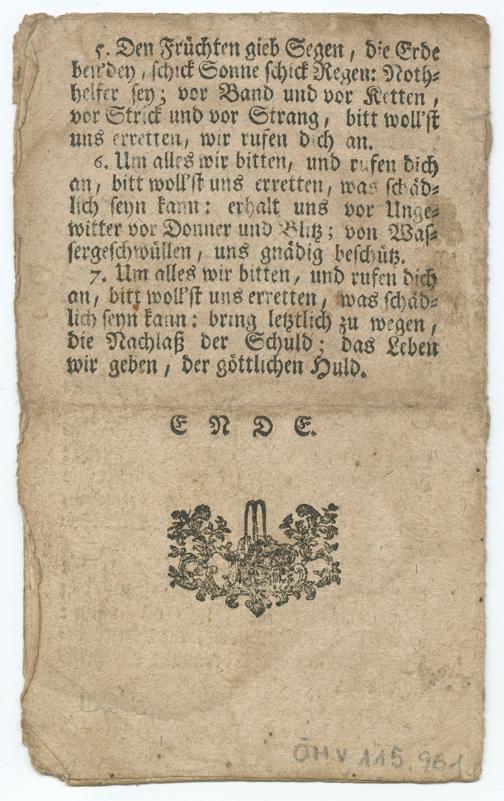 5. Den Früchten gieb Segen, die Erde
schick Sonne schick Regen: Noth-
helfer sey; vor Band und vor Ketten,
vor Strick und vor Strang, bitt woll'st
uns erretten, wir rufen dich an.
6. Um alles wir bitten, und rufen dich
an, bitt woll'st uns erretten, was schäd-
lich seyn kann: erhalt uns vor Unge-
witter vor Donner und Blitz; von Was-
sergeschwüllen, uns gnädig beschütz.
7. Um alles wir bitten, und rufen dich
an, bitt woll'st uns erretten, was schäd-
lich seyn kann: bring letztlich zu wegen,
die Nachlaß der Schuld; das Leben
wir geben, der göttlichen Huld.
ENDE.
ÖMV 115.961